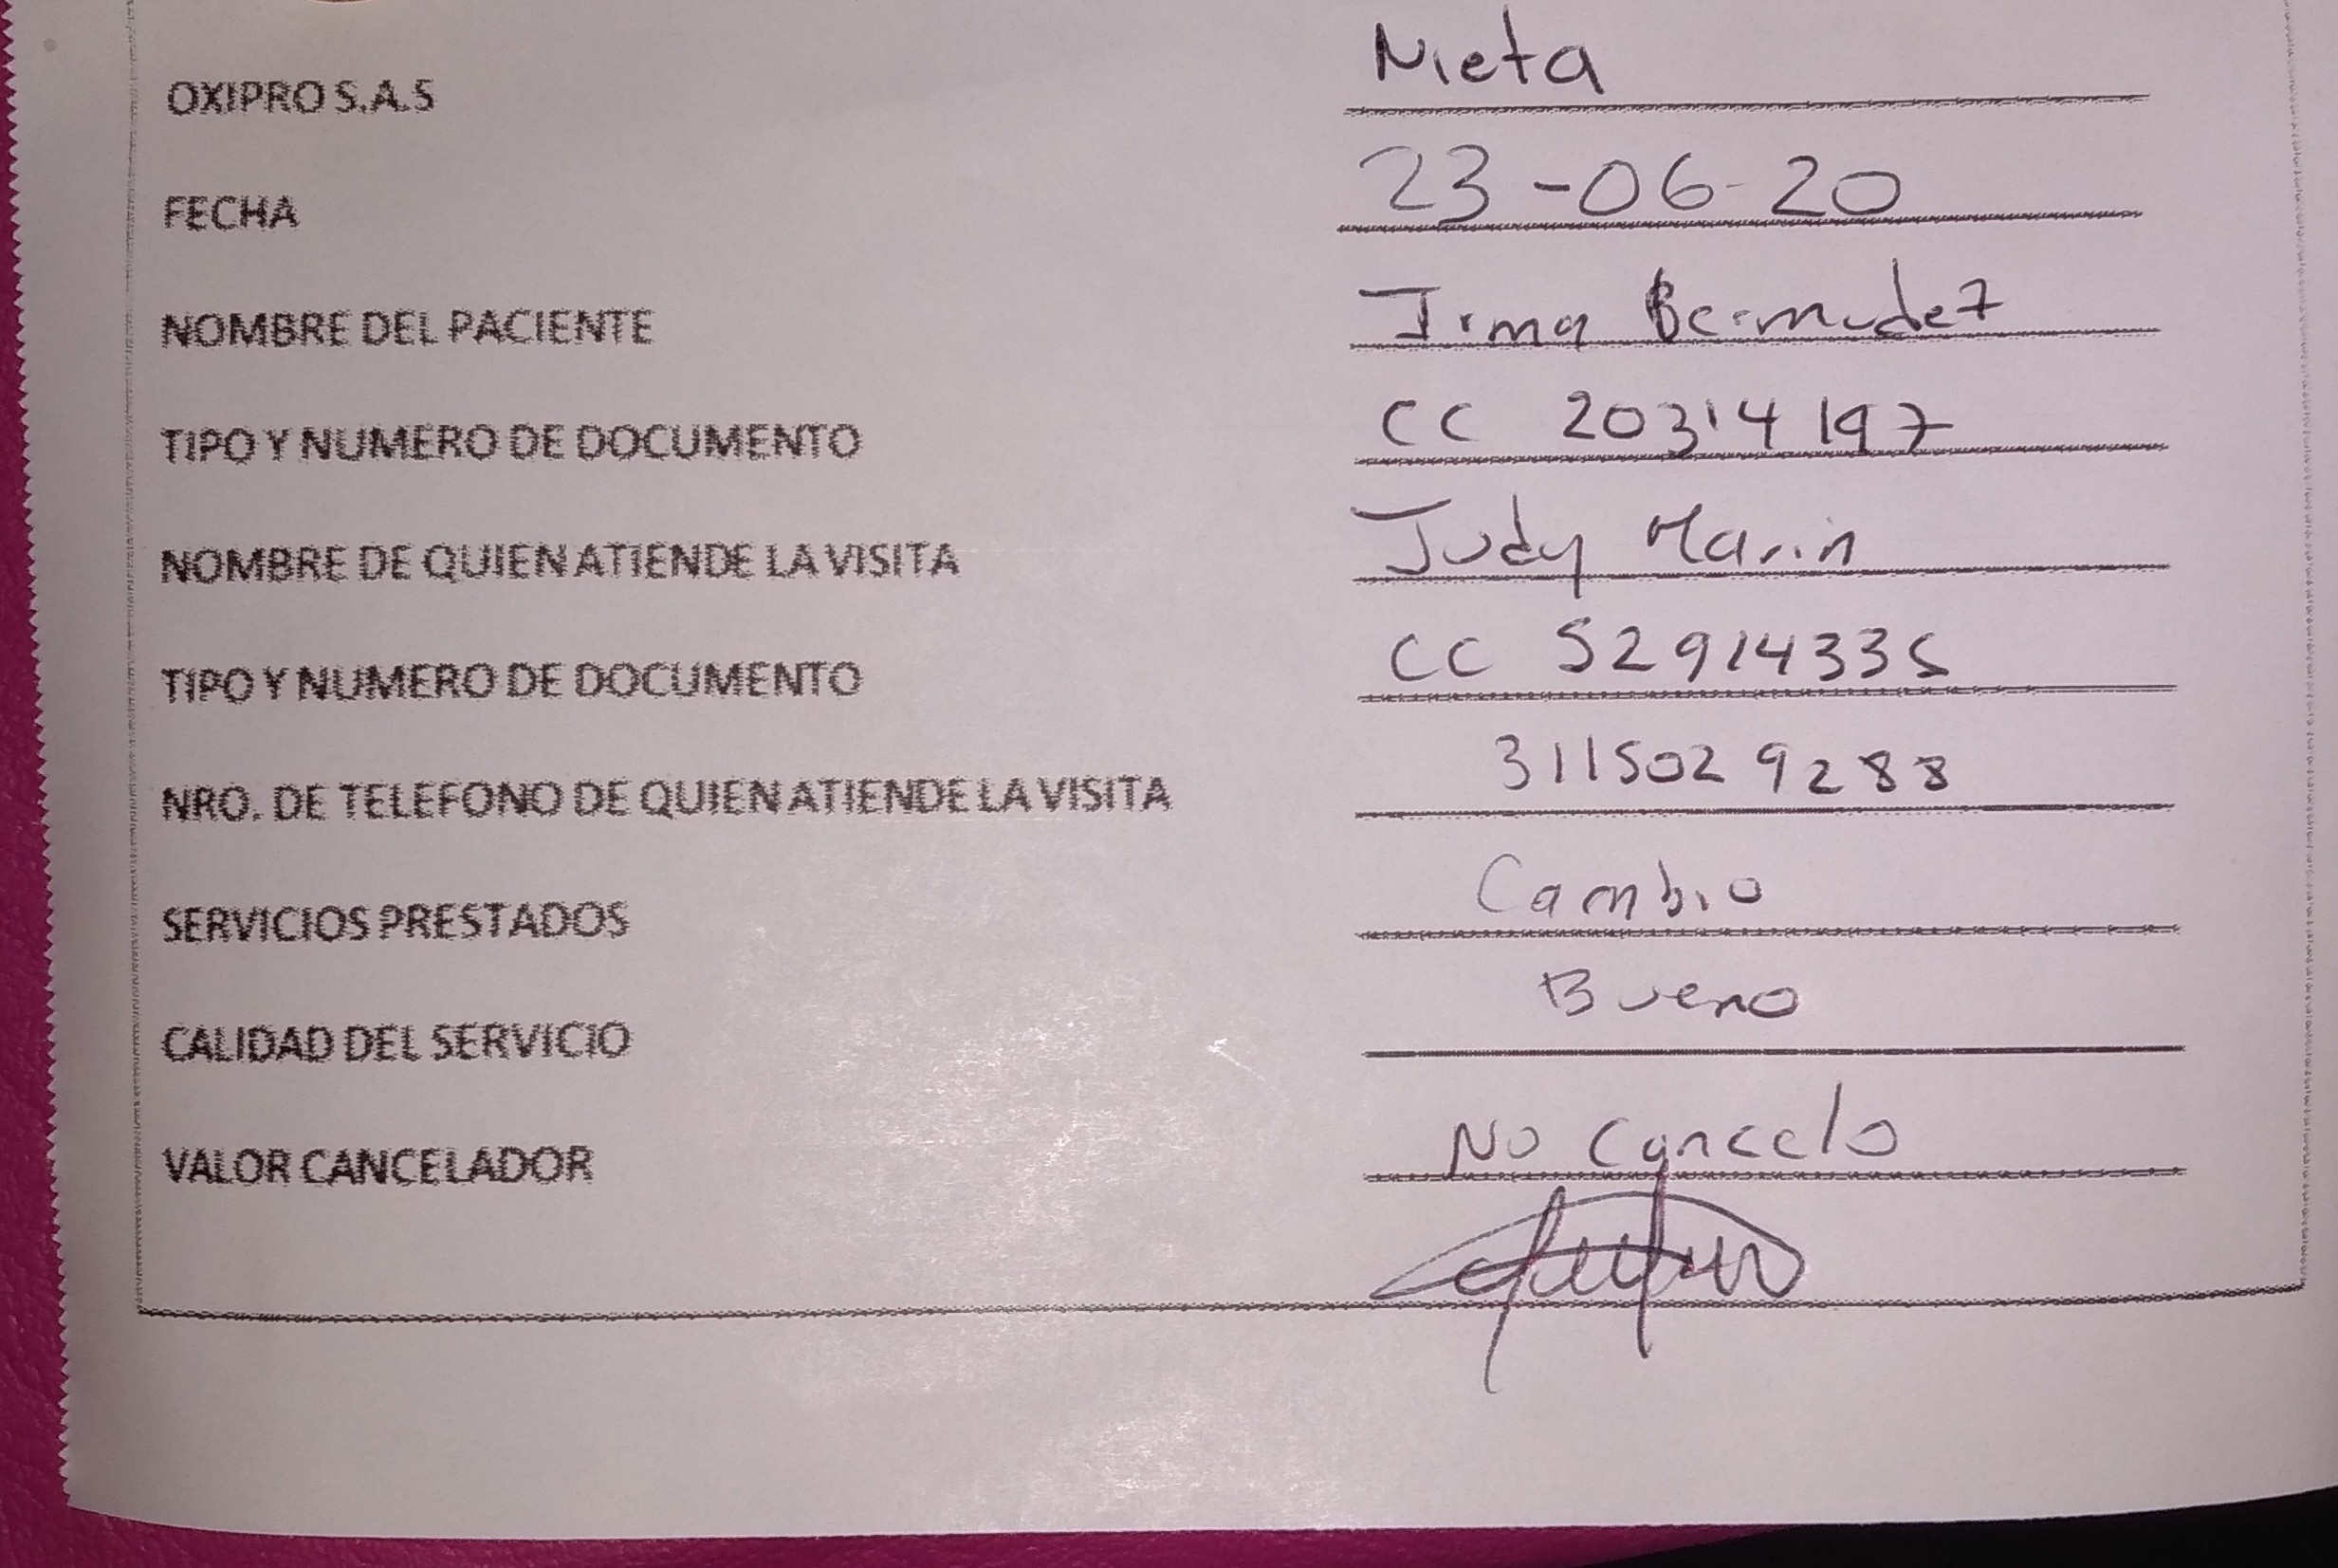 OXIPRO S.A.S Nieta
FECHA 23-06-20
NOMBRE DEL PACIENTE Irma Bermudez
TIPO Y NUMERO DE DOCUMENTO CC 20314197
NOMBRE DE QUIEN ATIENDE LA VISITA Judy Marin
TIPO Y NUMERO DE DOCUMENTO CC 52914335
NRO. DE TELEFONO DE QUIEN ATIENDE LA VISITA 3115029288
SERVICIOS PRESTADOS Cambio
CALIDAD DEL SERVICIO Bueno
VALOR CANCELADOR No Cancelo